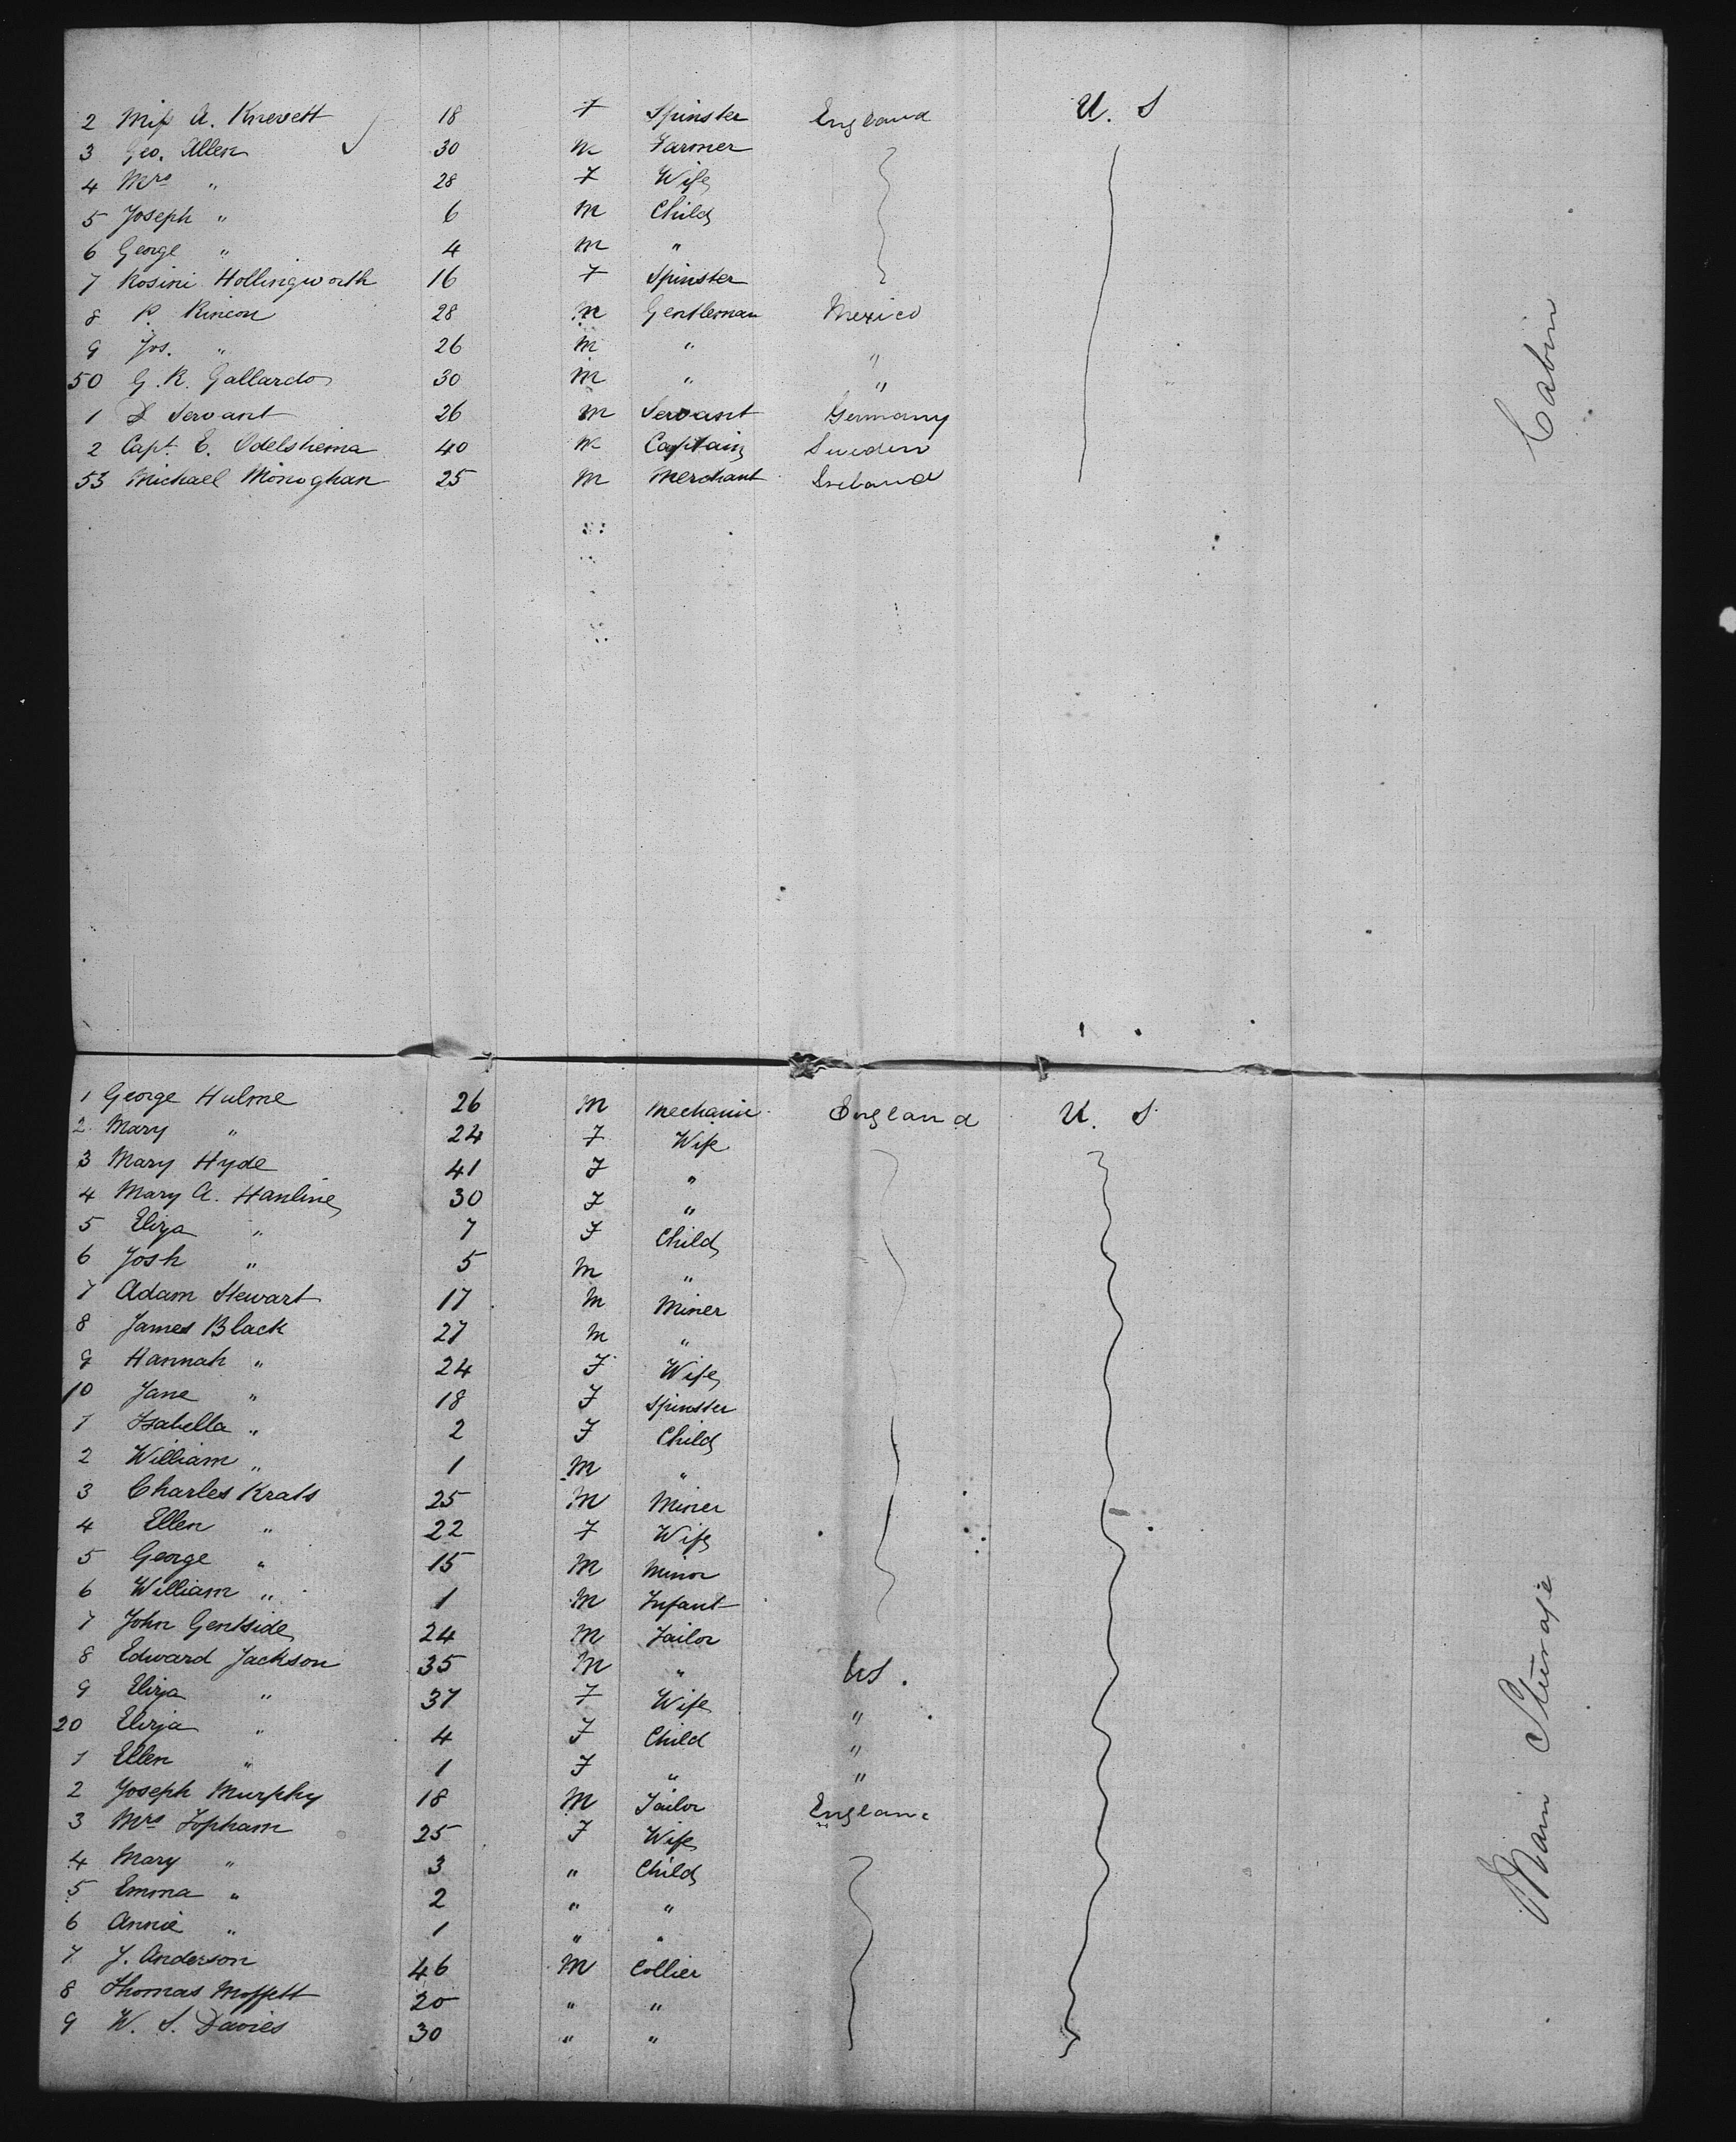 2 Miss A. Knevett 18 F Spinster England U. S
3 Geo. Allen 30 M Farmer
4 Mrs " 28 F Wife
5 Joseph " 6 M Child
6 George " 4 M "
7 Rosini Hollingworth 16 F Spinster
8 P. Rincon 28 M Gentleman Mexico
9 Jos. " 26 M " "
50 G. R. Gallardo 30 M " "
1 Servant 26 M Servant Germany
2 Capt. E. Odelshema 40 M Captain Sweden
53 Michael Monoghan 25 M Merchant Ireland
Cabin
1 George Hulme 26 M Mechanic England U. S
2 Mary " 24 F Wife
3 Mary Hyde 41 F "
4 Mary A. Hanline 30 F "
5 Eliza " 7 F Child
6 Josh " 5 M "
7 Adam Stewart 17 M Miner
8 James Black 27 M "
9 Hannah " 24 F Wife
10 Jane " 18 F Spinster
1 Isabella " 2 F Child
2 William " 1 M "
3 Charles Krats 25 M Miner
4 Ellen " 22 F Wife
5 George " 15 M Minor
6 William " 1 M Infant
7 John Gentside 24 M Tailor
8 Edward Jackson 35 M " US.
9 Eliza " 37 F Wife "
20 Eliza " 4 F Child "
1 Ellen " 1 F " "
2 Joseph Murphy 18 M Tailor England
3 Mrs Topham 25 F Wife
4 Mary " 3 " Child
5 Emma " 2 " "
6 Annie " 1 " "
7 J. Anderson 46 M Collier
8 Thomas Moffett 20 " "
9 W. S. Davies 30 " "
Main Steerage